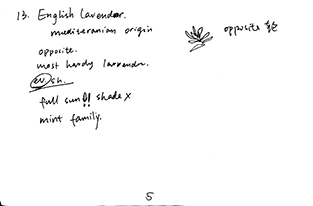 13. English lavender.
mediteranian origin
opposite.
most hardy lavender.
ev. sh.
full sun!! shade x
mint family.
opposite
5